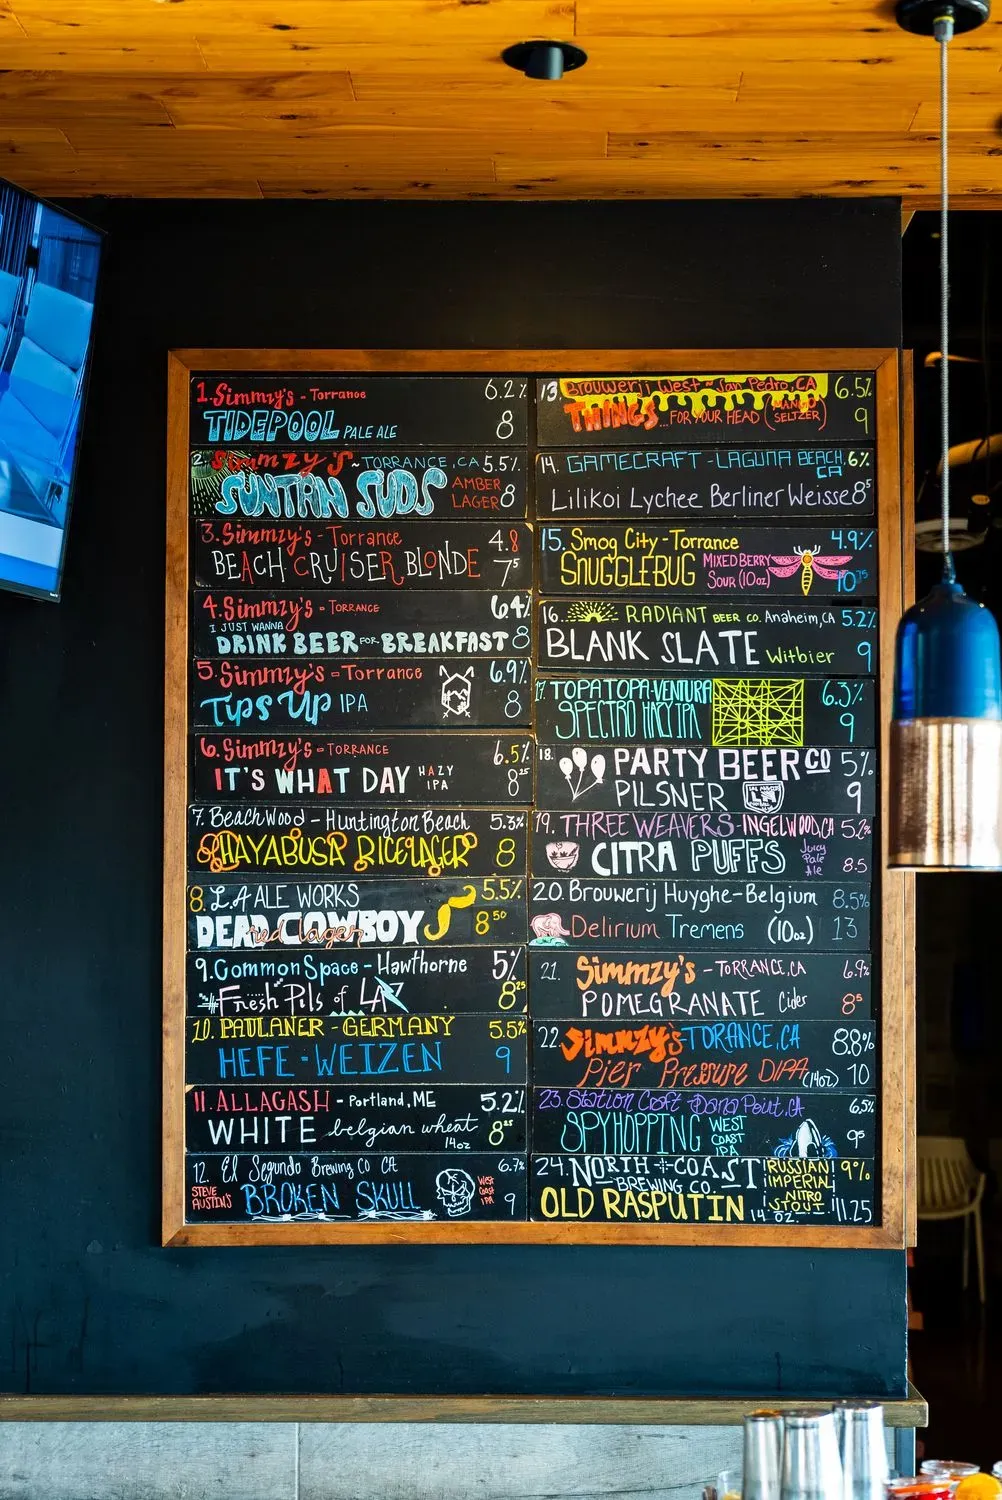 1. Simmzy's - Torrance 6.2%
TIDEPOOL PALE ALE 8
2. Simmzy's ~ TORRANCE, CA 5.5%
SUNTAN SUDS AMBER LAGER 8
3. Simmzy's - Torrance 4.8
BEACH CRUISER BLONDE 7⁵
4. Simmzy's - TORRANCE 6.4%
I JUST WANNA
DRINK BEER FOR BREAKFAST 8
5. Simmzy's - Torrance 6.9%
Tips Up IPA 8
6. Simmzy's - TORRANCE 6.5%
IT'S WHAT DAY HAZY IPA 8²⁵
7. Beachwood - Huntington Beach 5.3%
HAYABUSA RICE LAGER 8
8. L.A ALE WORKS 5.5%
DEAD COWBOY red lager 8⁵⁰
9. Common Space - Hawthorne 5%
#Fresh Pils of LAZ 8²⁵
10. PAULANER - GERMANY 5.5%
HEFE-WEIZEN 9
11. ALLAGASH - Portland, ME 5.2%
WHITE belgian wheat 14oz 8²⁵
12. El Segundo Brewing Co CA 6.7%
STEVE AUSTIN'S BROKEN SKULL West Coast IPA 9
13. Brouwerij West ~ San Pedro, CA 6.5%
THINGS... FOR YOUR HEAD (MANGO SELTZER) 9
14. GAMECRAFT - LAGUNA BEACH, CA 6%
Lilikoi Lychee Berliner Weisse 8⁵
15. Smog City - Torrance 4.9%
SNUGGLEBUG MIXED BERRY SOUR (10oz) 10⁷⁵
16. RADIANT BEER CO. Anaheim, CA 5.2%
BLANK SLATE Witbier 9
17. TOPA TOPA - VENTURA 6.3%
SPECTRO HAZY IPA 9
18. PARTY BEER CO 5%
PILSNER 9
19. THREE WEAVERS - INGELWOOD, CA 5.2%
CITRA PUFFS Juicy Pale Ale 8.5
20. Brouwerij Huyghe - Belgium 8.5%
Delirium Tremens (10oz) 13
21. Simmzy's - TORRANCE, CA 6.9%
POMEGRANATE Cider 8⁵
22. Simmzy's - TORANCE, CA 8.8%
Pier Pressure DIPA (14oz) 10
23. Station Craft - Dana Point, CA 6.5%
SPYHOPPING WEST COAST IPA 9⁵
24. NORTH COAST BREWING CO. RUSSIAN IMPERIAL NITRO STOUT 9%
OLD RASPUTIN 14 OZ. 11.25